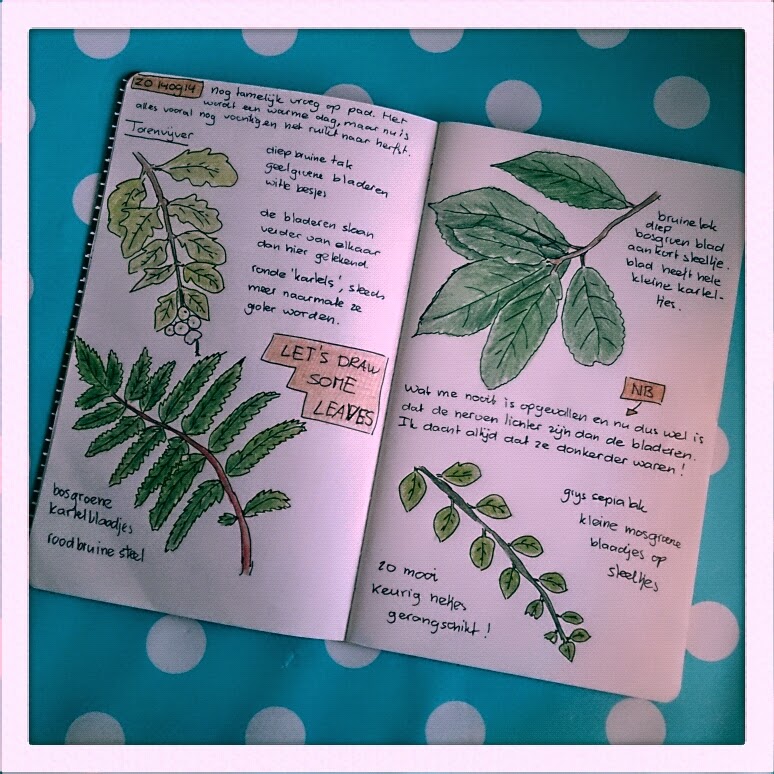 ZO 140914
nog tamelijk vroeg op pad. Het
wordt een warme dag, maar nu is
alles vooral nog vochtig en het ruikt naar herfst.
Torenvijver
diep bruine tak
geelgroene bladeren
witte besjes
de bladeren staan
verder van elkaar
dan hier getekend.
ronde 'kartels', steeds
meer naarmate ze
groter worden.
LET'S DRAW
SOME
LEAVES
bosgroene
kartelblaadjes
roodbruine steel
bruine tak
diep
bosgroen blad
aan kort steeltje.
blad heeft hele
kleine kartel-
tjes.
NB
Wat me nooit is opgevallen en nu dus wel is
dat de nerven lichter zijn dan de bladeren.
Ik dacht altijd dat ze donkerder waren!
grijs sepia tak
kleine mosgroene
blaadjes op
steeltjes
zo mooi
keurig netjes
gerangschikt!